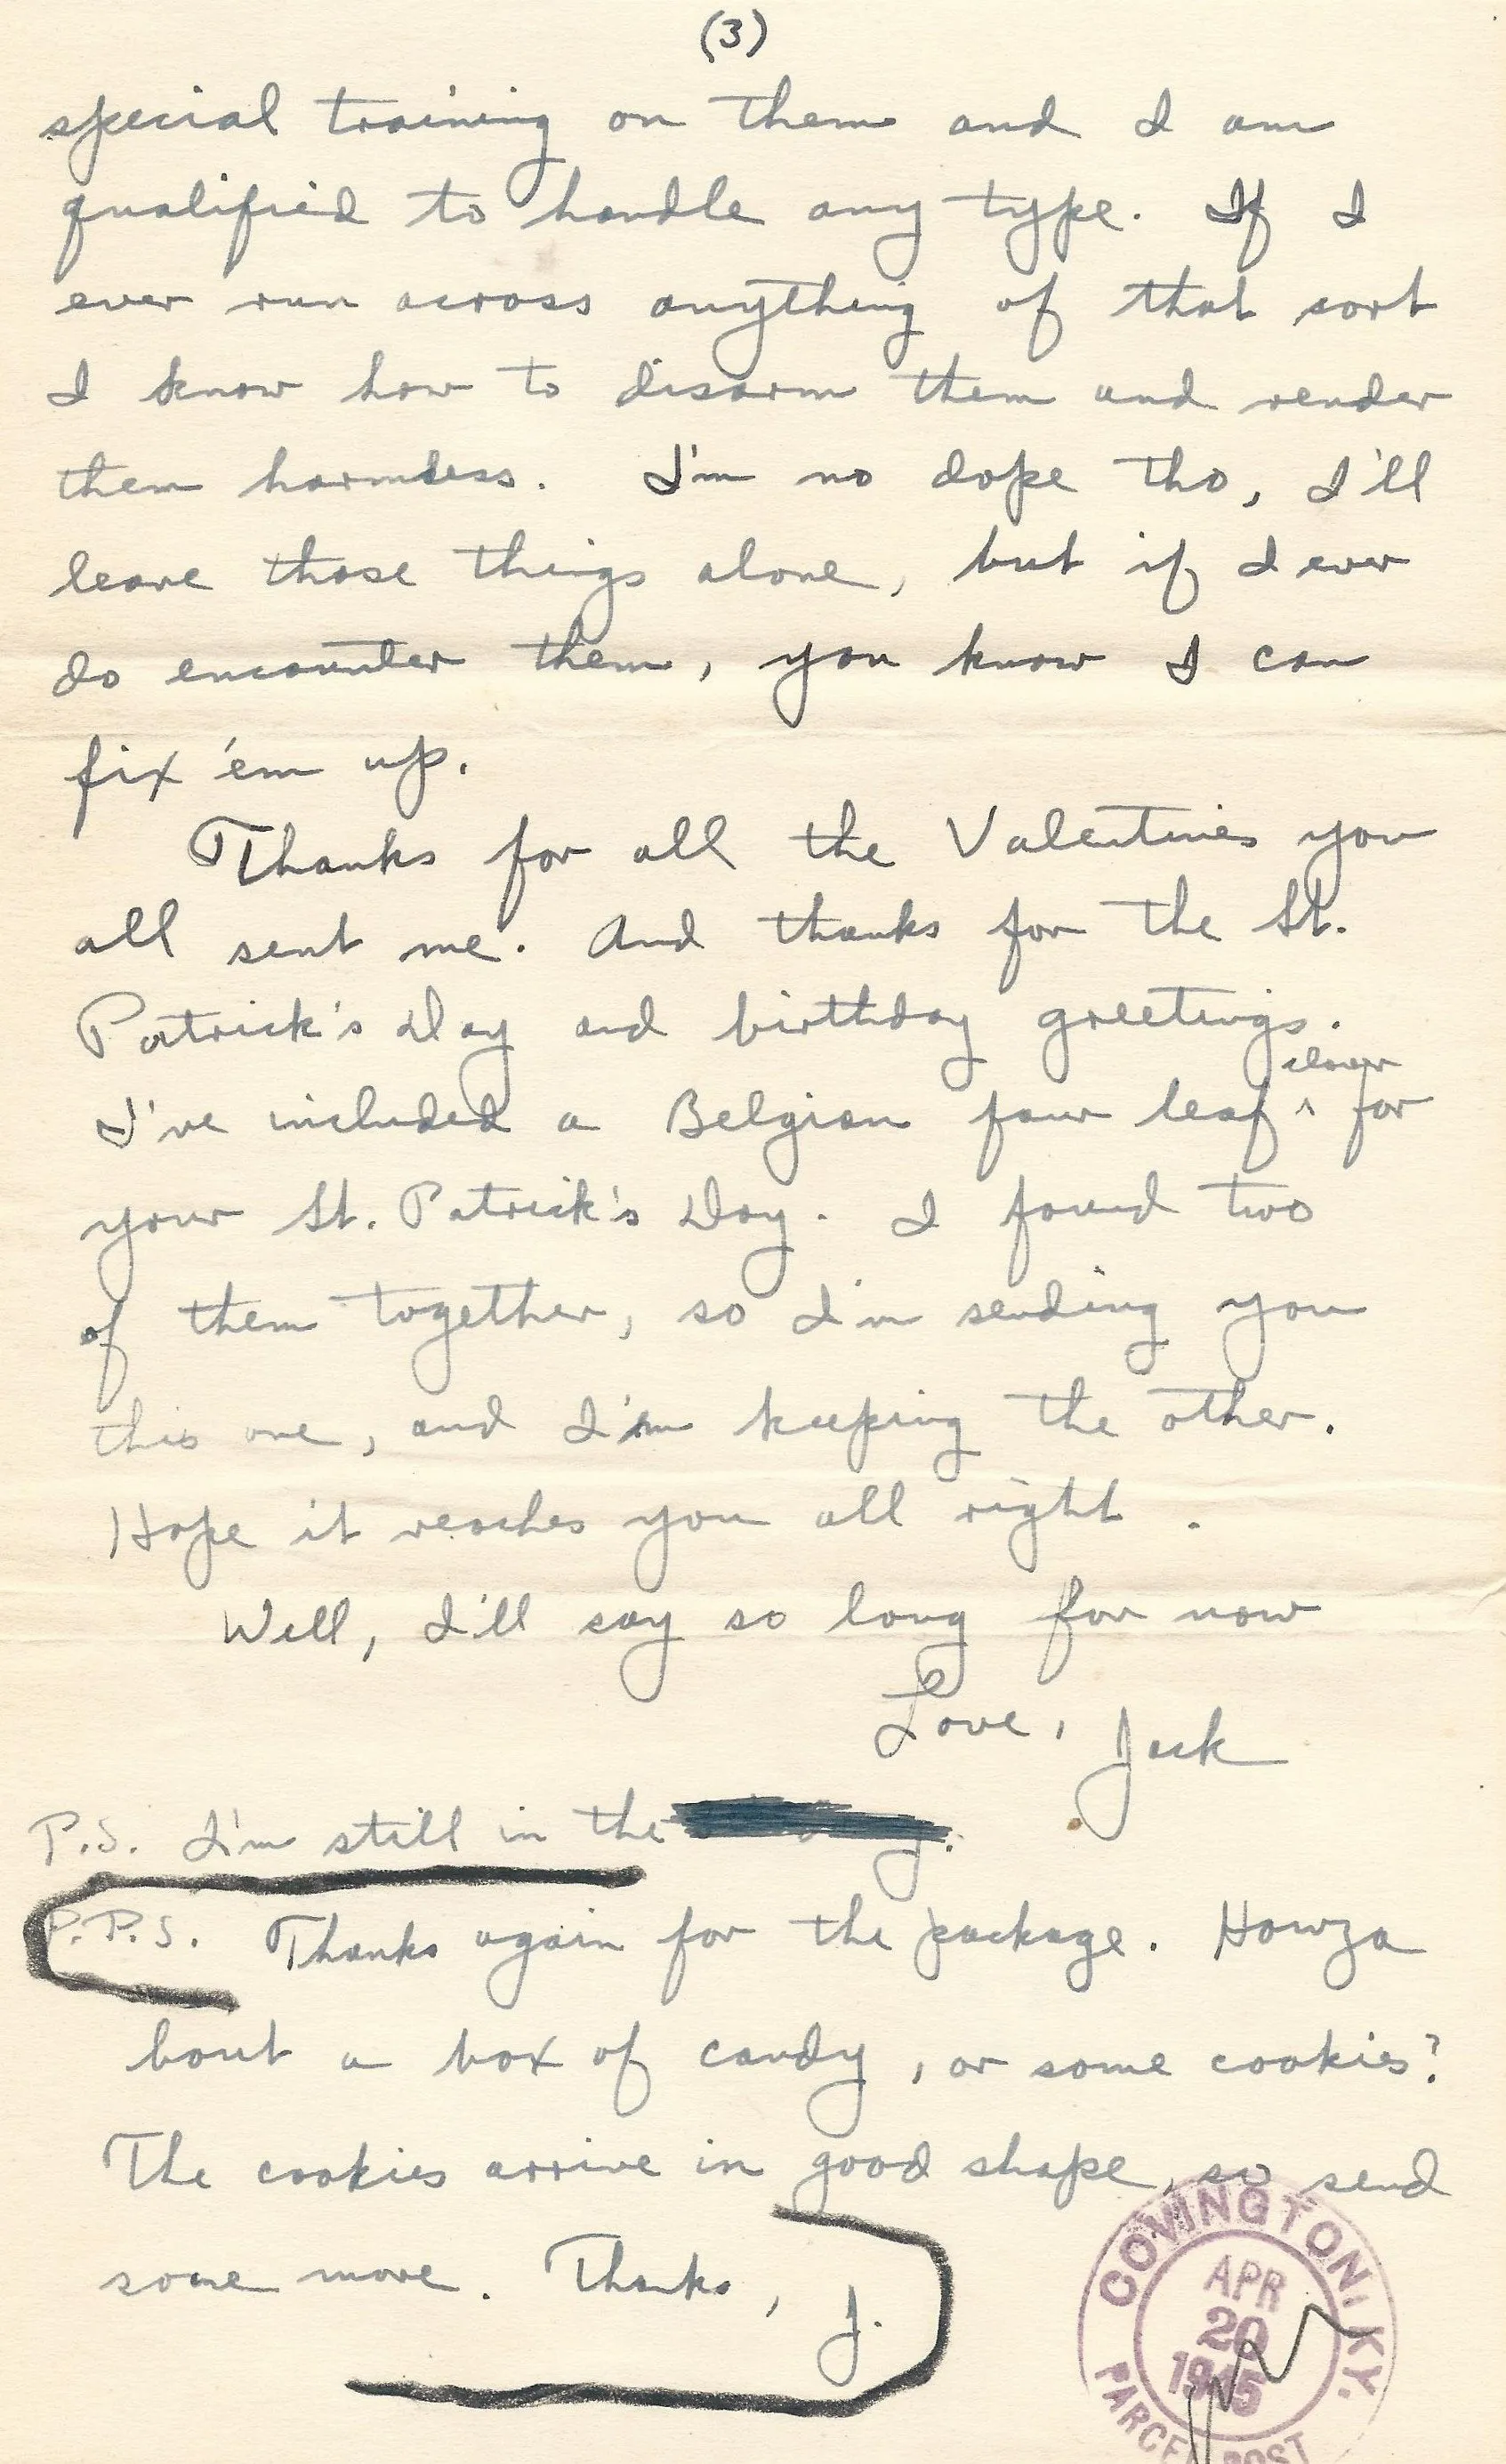 (3)
special training on them and I am
qualified to handle any type. If I
ever run across anything of that sort
I know how to disarm them and render
them harmless. I'm no dope tho, I'll
leave those things alone, but if I ever
do encounter them, you know I can
fix 'em up.
Thanks for all the Valentines you
all sent me. And thanks for the St.
Patrick's Day and birthday greetings.
I've included a Belgian four leaf ^ clover for
your St. Patrick's Day. I found two
of them together, so I'm sending you
this one, and I'm keeping the other.
Hope it reaches you all right.
Well, I'll say so long for now
Love, Jack
P.S. I'm still in the
P.P.S. Thanks again for the package. Howza
bout a box of candy, or some cookies?
The cookies arrive in good shape, so send
some more. Thanks, J.
COVINGTON, KY.
APR
20
1945
PARCEL POST